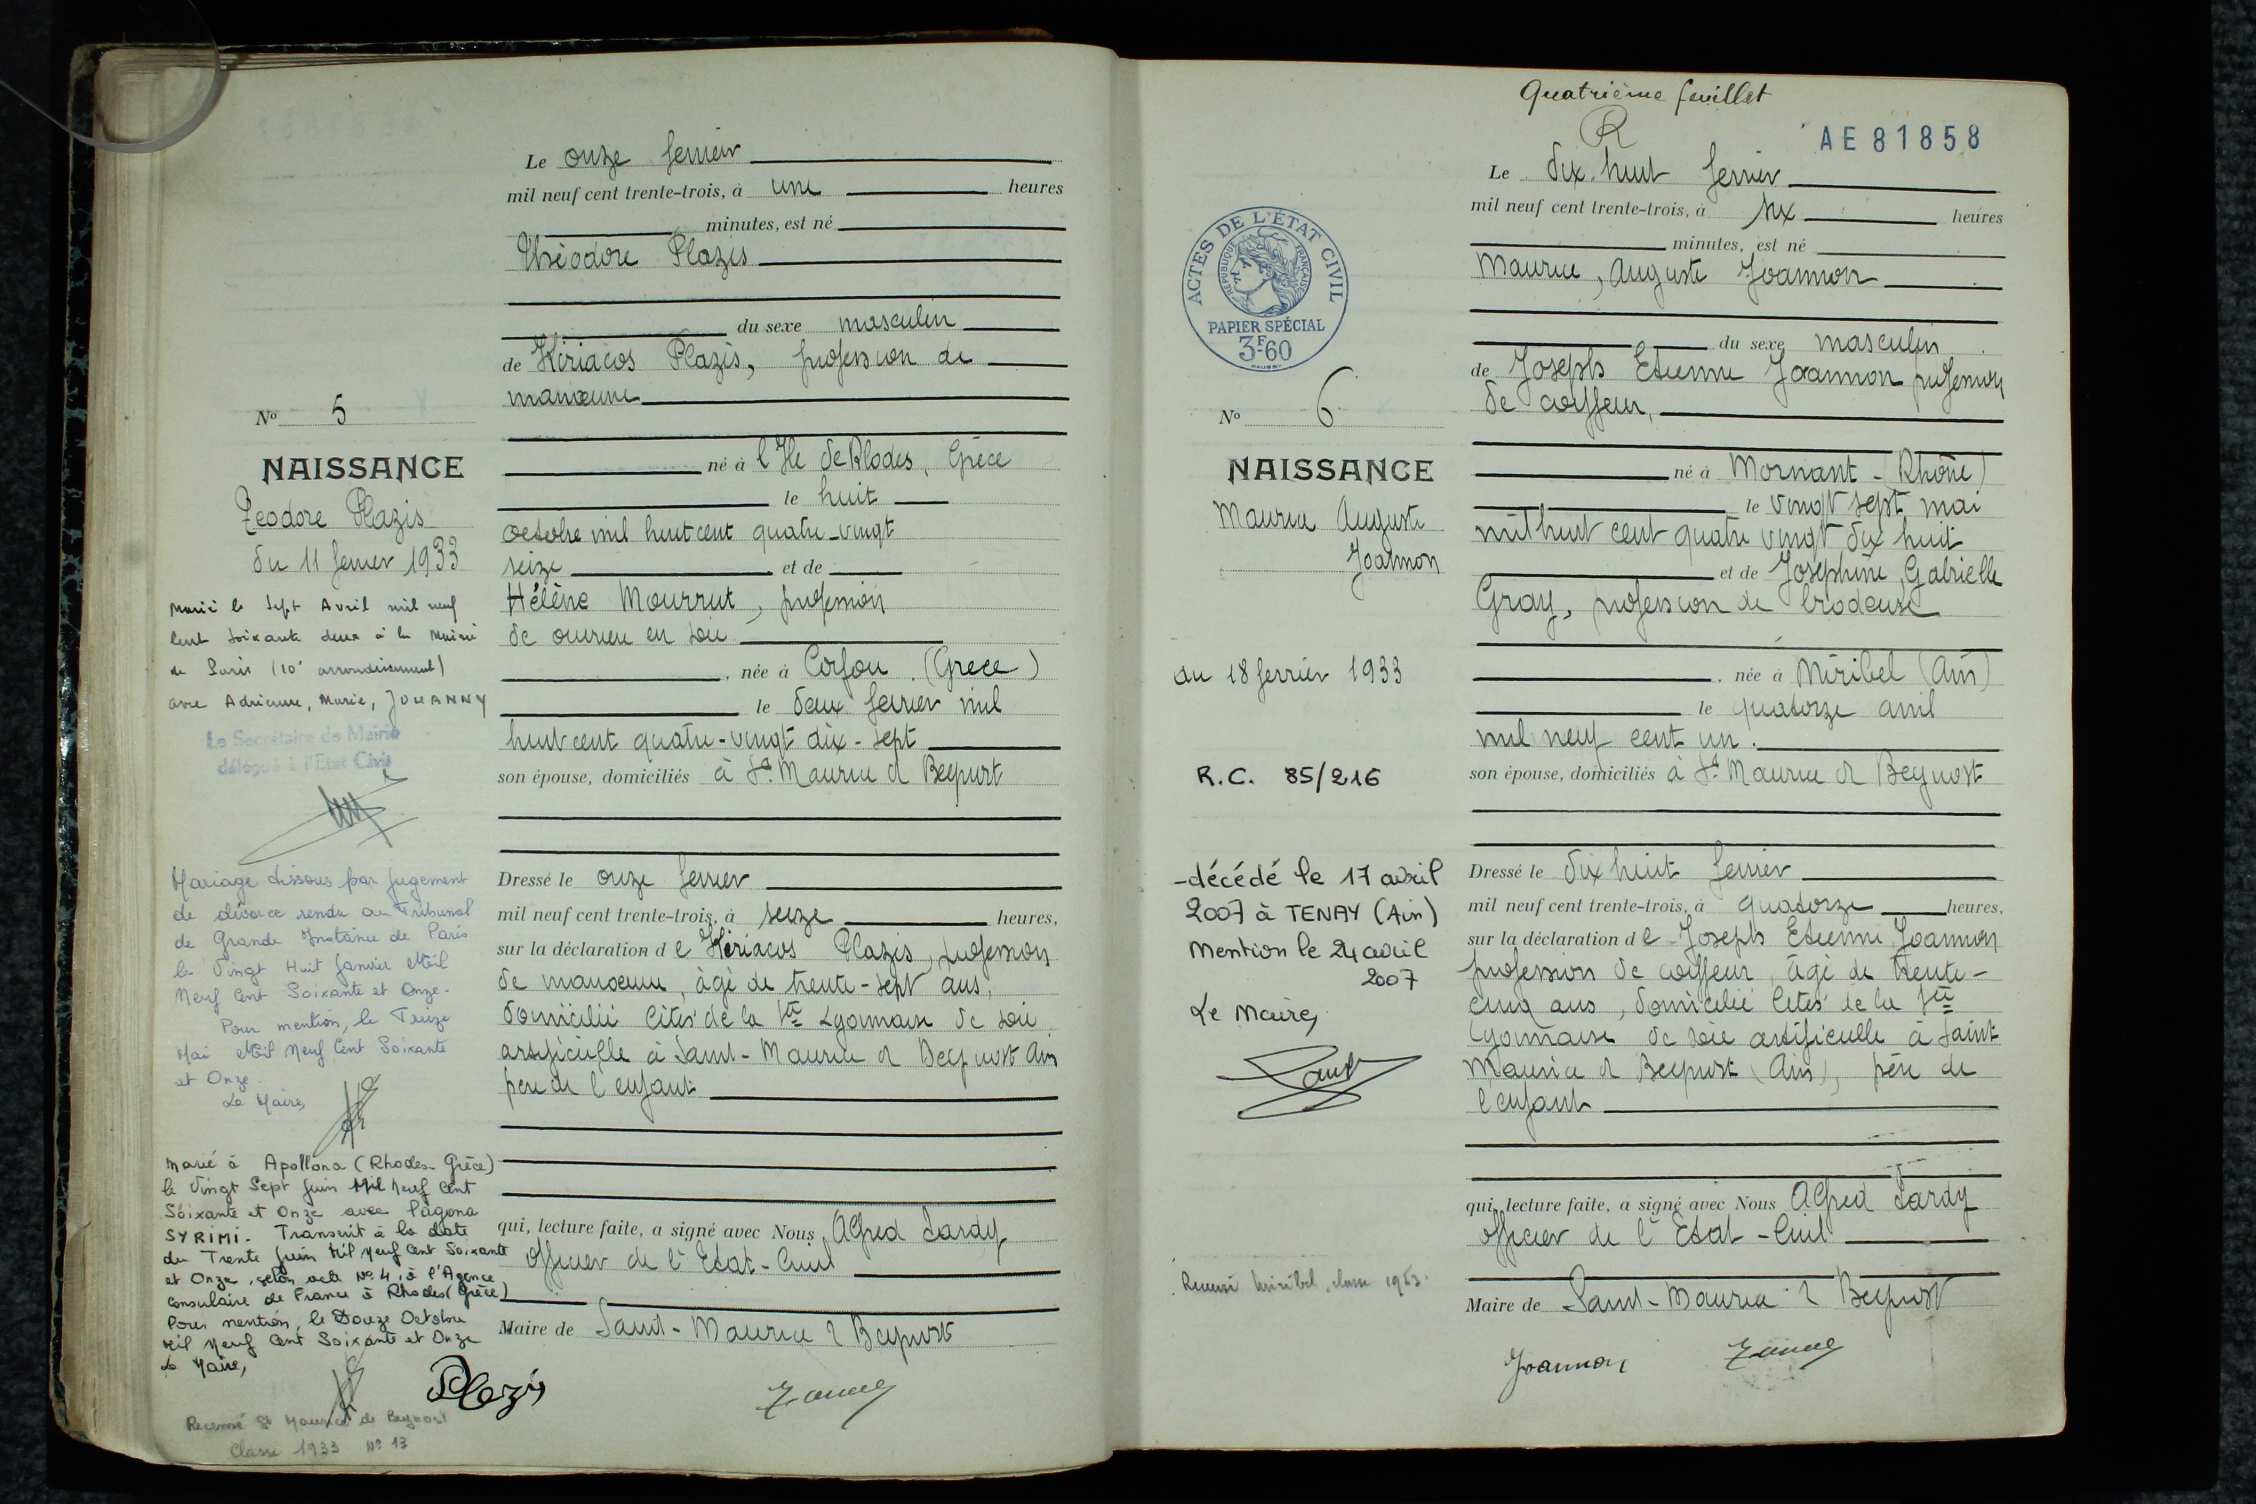 Le onze fevrier
mil neuf cent trente-trois, à une heures
minutes, est né
Théodore Plazis
du sexe masculin
de Kiriacos Plazis, profession de
manœuvre
né à l'Ile de Rhodes, Grèce
le huit
octobre mil huit cent quatre-vingt
seize et de
Hélène Mourrut, profession
de ouvrière en soie
née à Corfou (Grece)
le deux fevrier mil
huit cent quatre-vingt dix-sept
son épouse, domiciliés à St Maurice d Beynost
Dressé le onze fevrier
mil neuf cent trente-trois, à seize heures,
sur la déclaration de Kiriacos Plazis, profession
de manœuvre, âgé de trente-sept ans,
domicilié Cités de la Sté Lyonnaise de soie
artificielle à Saint-Maurice d Beynost Ain
père de l'enfant
qui, lecture faite, a signé avec Nous Alfred Lardy
officier de l'Etat-Civil
Maire de Saint-Maurice d Beynost
Plazis
No 5
NAISSANCE
Teodore Plazis
du 11 fevrier 1933
Marié le Sept Avril mil neuf
cent soixante deux à la Mairie
de Paris (10e arrondissement)
avec Adrienne, Marie, JOUANNY
Le Secrétaire de Mairie
délégué à l'Etat Civil
Mariage dissous par jugement
de divorce rendu au Tribunal
de Grande Instance de Paris
le Vingt Huit Janvier Mil
Neuf Cent Soixante et Onze.
Pour mention, le Treize
Mai Mil Neuf Cent Soixante
et Onze.
Le Maire,
Marié à Apollona (Rhodes-Grèce)
le Vingt Sept Juin Mil Neuf Cent
Soixante et Onze avec Pagona
SYRIMI. Transcrit à la date
du Trente Juin Mil Neuf Cent Soixante
et Onze, selon acte No 4, à l'Agence
Consulaire de France à Rhodes (Grèce)
Pour mention, le Douze Octobre
Mil Neuf Cent Soixante et Onze
Le Maire,
Recensé St Maurice de Beynost
Classe 1933 No 13
Quatrième feuillet
AE 81858
Le dix-huit fevrier
mil neuf cent trente-trois, à six heures
minutes, est né
Maurice, Auguste Joannon
du sexe masculin
de Joseph Etienne Joannon profession
de coiffeur,
né à Mornant - (Rhône)
le vingt sept mai
mil huit cent quatre vingt dix huit
et de Joséphine, Gabrielle
Gray, profession de brodeuse
née à Miribel (Ain)
le quatorze avril
mil neuf cent un.
son épouse, domiciliés à St Maurice d Beynost
Dressé le dix huit fevrier
mil neuf cent trente-trois, à quatorze heures,
sur la déclaration de Joseph Etienne Joannon
profession de coiffeur, âgé de trente-
cinq ans, domicilié Cités de la Sté
Lyonnaise de soie artificielle à Saint
Maurice d Beynost (Ain), père de
l'enfant
qui, lecture faite, a signé avec Nous Alfred Lardy
officier de l'Etat-Civil
Maire de Saint-Maurice d Beynost
Joannon
ACTES DE L'ÉTAT CIVIL
RÉPUBLIQUE FRANÇAISE
PAPIER SPÉCIAL
3F.60
No 6
NAISSANCE
Maurice Auguste
Joannon
du 18 fevrier 1933
R.C. 85/216
-décédé le 17 avril
2007 à TENAY (Ain)
Mention le 24 avril
2007
Le Maire,
Recensé Miribel, classe 1953.